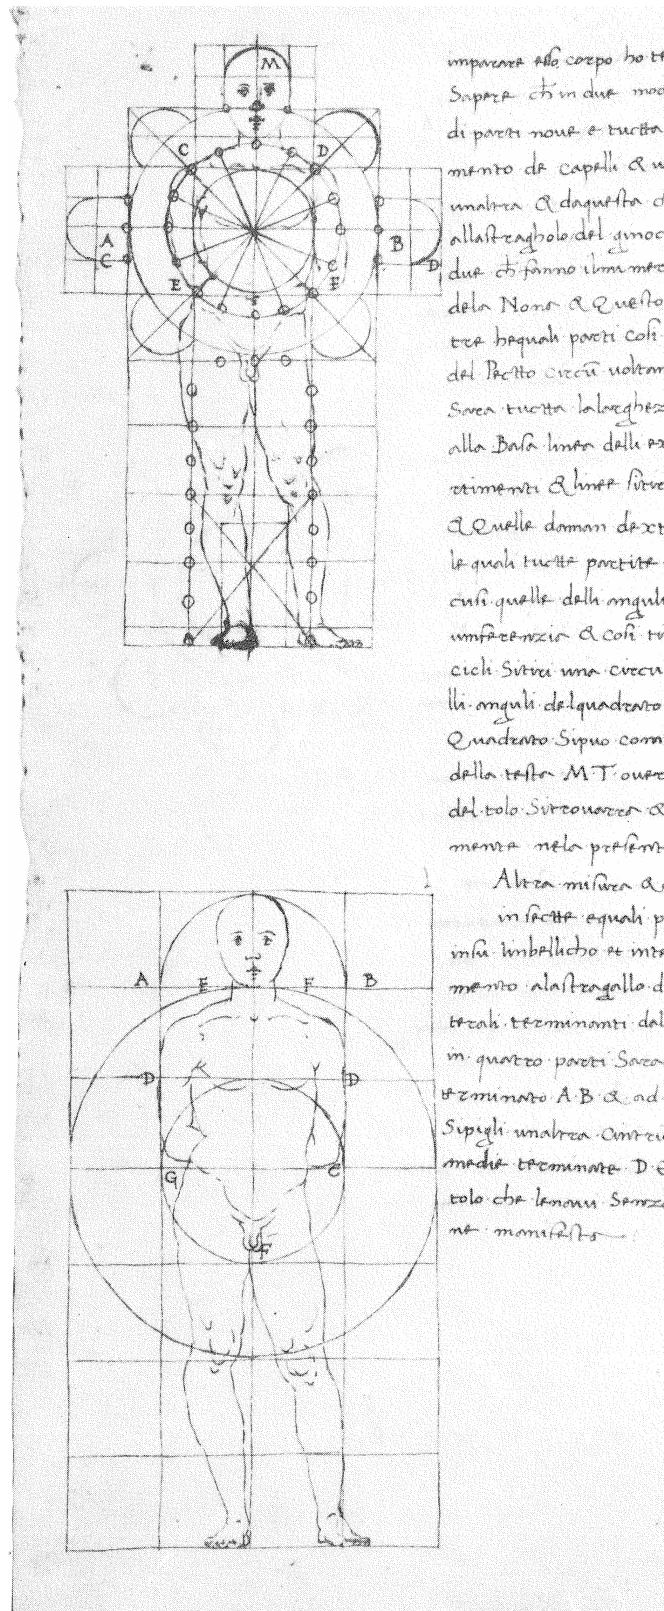 imparare esso corpo ho te
Sapere ch̄ in due mod
di parti nove e tuctta
mento de capelli & u
unaltra & daquesta d
allastragholo del ginoc
due ch̄ fanno il mi mer
dela Nona & Questo
tre hequali parti cosi
del Pectto circū voltan
Sara tuctta lalarghez
alla Basa linea delli ex
rtimenti & linee sitir
& Quelle daman dext
le quali tuctte partite
cusi quelle delli anguli
umferenzia & cosi ti
cicli Sitiri una circu
lli anguli delquadrato
Quadrato Sipuo com
della testa M.T. over
del tolo Sitrovarra &
mente nela present
Altra misura &
in sectte equali p
insu linbellicho et inte
mento alastragallo d
terali terminanti dal
in quatro parti Sara
terminato A.B & ad
Sipigli unaltra Cintri
medie terminate D
tolo che lenavi Senza
ne manifesto
M
C D
A B
C D
E F
A B
E F
D D
G C
F